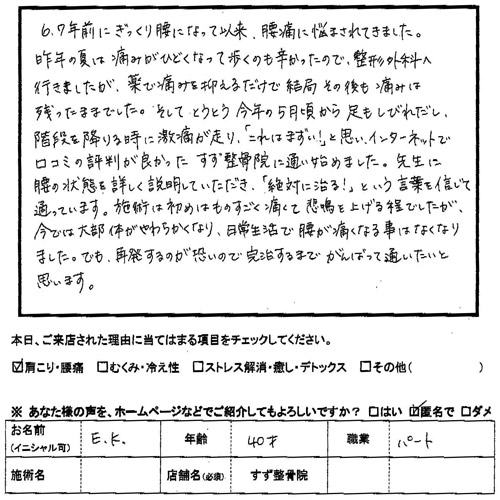 6,7年前にぎっくり腰になって以来、腰痛に悩まされてきました。
昨年の夏は痛みがひどくなって歩くのも辛かったので、整形外科へ
行きましたが、薬で痛みを抑えるだけで結局その後も痛みは
残ったままでした。そしてとうとう今年の5月頃から足もしびれだし、
階段を降りる時に激痛が走り、「これはまずい!」と思い、インターネットで
口コミの評判が良かったすず整骨院に通い始めました。先生に
腰の状態を詳しく説明していただき、「絶対に治る!」という言葉を信じて
通っています。施術は初めはものすごく痛くて悲鳴を上げる程でしたが、
今では大部体がやわらかくなり、日常生活で腰が痛くなる事はなくなり
ました。でも、再発するのが恐いので完治するまでがんばって通いたいと
思います。
本日、ご来店された理由に当てはまる項目をチェックしてください。
☑肩こり・腰痛 □むくみ・冷え性 □ストレス解消・癒し・デトックス □その他( )
※ あなた様の声を、ホームページなどでご紹介してもよろしいですか? □はい ☑匿名で □ダメ
お名前 (イニシャル可) E.K. 年齢 40才 職業 パート
施術名 店舗名(必須) すず整骨院